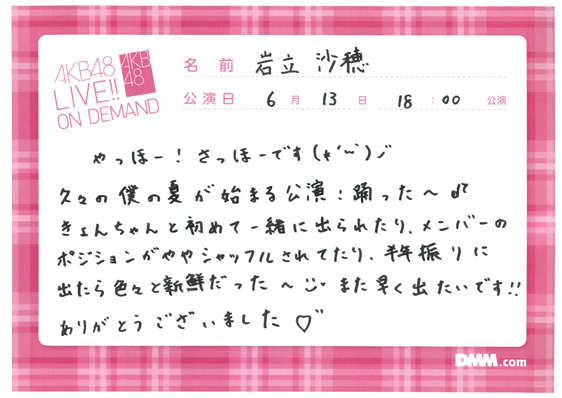 AKB48
LIVE!!
ON DEMAND
AKB
48
名前 岩立 沙穂
公演日 6月 13日 18:00 公演
やっほー！さっほーです(*'ω')ノ
久々の僕の夏が始まる公演！踊った〜♪
きょんちゃんと初めて一緒に出られたり、メンバーの
ポジションがややシャッフルされてたり、半年振りに
出たら色々と新鮮だった〜 また早く出たいです!!
ありがとうございました♡
DMM.com